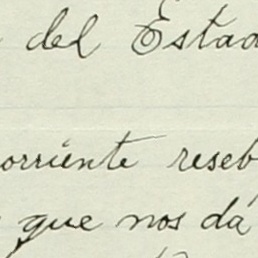 del Estad
orriente reseb
que nos dá